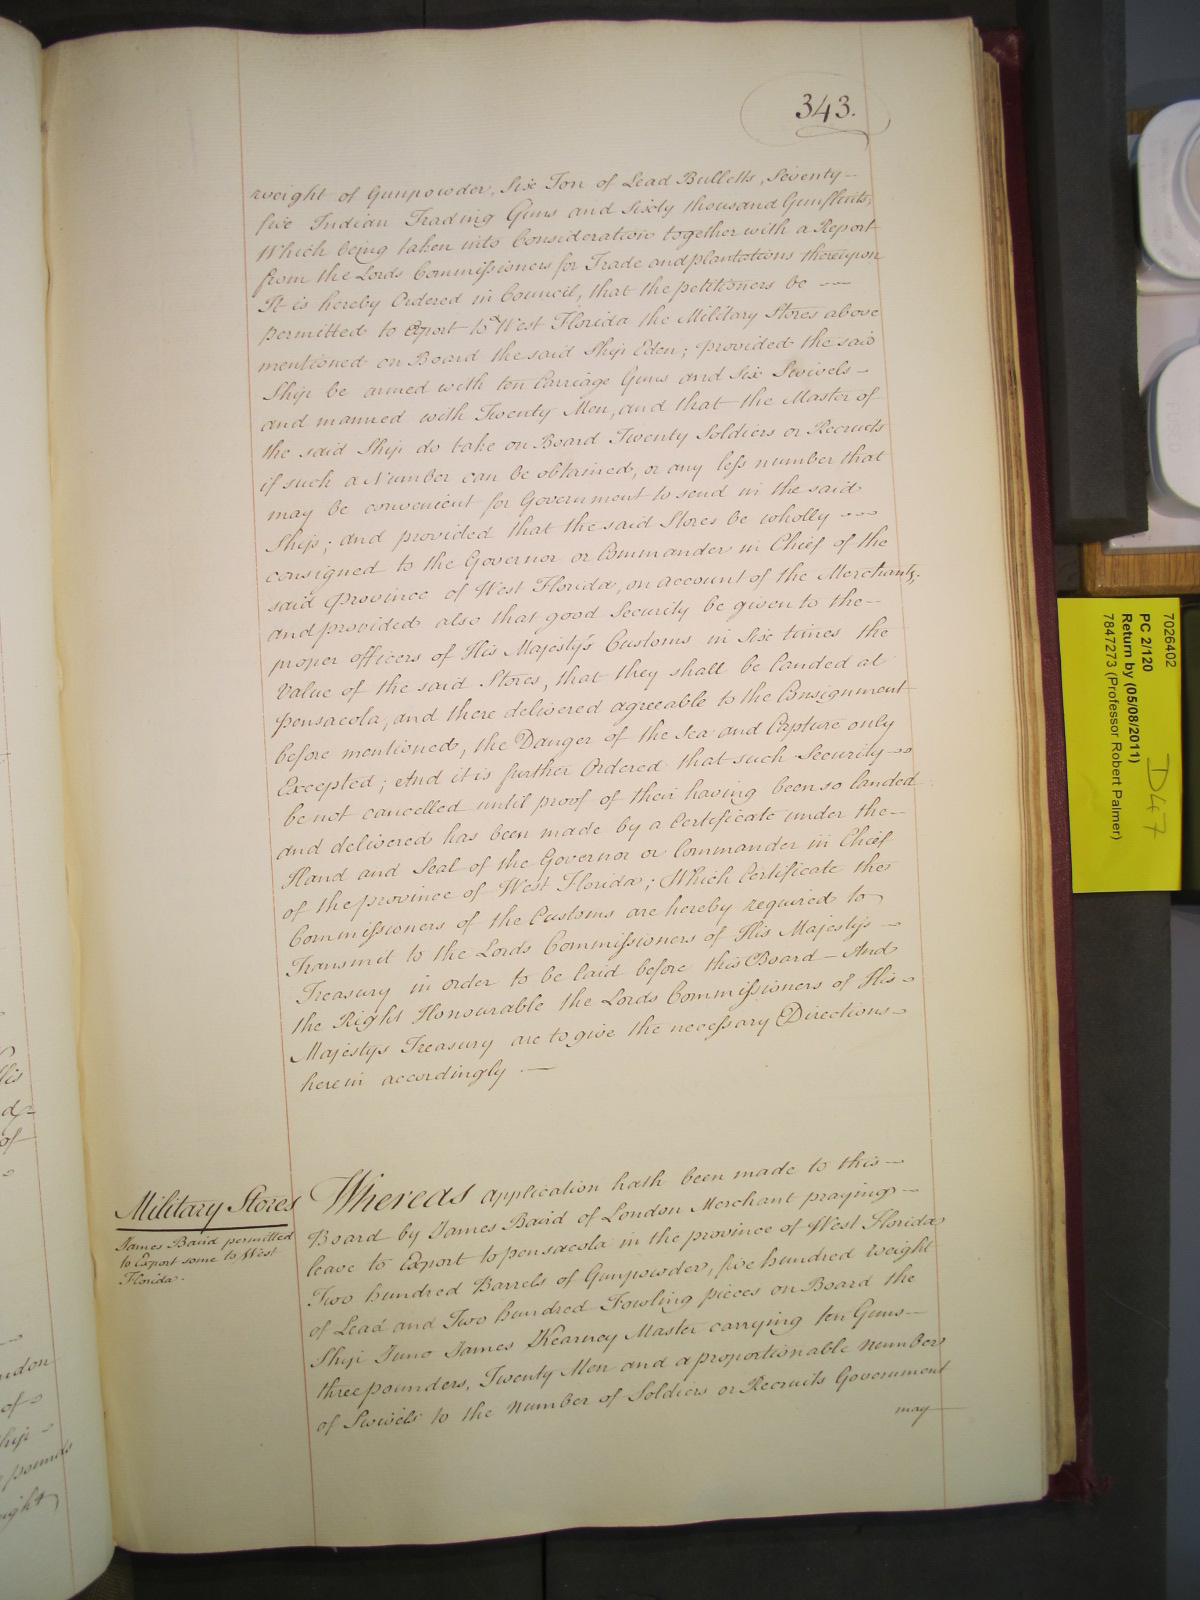 343.
weight of Gunpowder, Six Ton of Lead Bulletts, Seventy-
five Indian Trading Guns and Sixty thousand Gunflints;
Which being taken into Consideration together with a Report
from the Lords Commissioners for Trade and plantations thereupon
It is hereby Ordered in Council, that the petitioners be --
permitted to Export to West Florida the Military Stores above
mentioned on Board the said Ship Eden; provided the said
Ship be armed with ten Carriage Guns and Six Swivels-
and manned with Twenty Men, and that the Master of
the said Ship do take on Board Twenty Soldiers or Recruits
if such a Number can be obtained, or any less number that
may be convenient for Government to send in the said
Ship; and provided that the said Stores be wholly ---
consigned to the Governor or Commander in Chief of the
said province of West Florida, on account of the Merchants,
and provided also that good Security be given to the--
proper officers of His Majesty's Customs in Six times the
Value of the said Stores, that they shall be landed at
pensacola, and there delivered agreeable to the Consignment
before mentioned, the Danger of the Sea and Capture only
Excepted; And it is further Ordered that such Security--
be not cancelled until proof of their having been so landed
and delivered has been made by a Certificate under the--
Hand and Seal of the Governor or Commander in Chief
of the province of West Florida; Which Certificate the
Commissioners of the Customs are hereby required to
Transmit to the Lords Commissioners of His Majesty's -
Treasury in order to be laid before this Board - And
the Right Honourable the Lords Commissioners of His -
Majestys Treasury are to give the necessary Directions -
herein accordingly. -
Military Stores
James Baird permitted
to Export some to West
Florida.
Whereas application hath been made to this -
Board by James Baird of London Merchant praying -
leave to Export to pensacola in the province of West Florida
Two hundred Barrels of Gunpowder, five hundred weight
of Lead and Two hundred Fowling pieces on Board the
Ship Juno James Kearney Master carrying ten Guns -
three pounders, Twenty Men and a proportionable number
of Swivels to the number of Soldiers or Recruits Government
may
7026402
PC 2/120
Return by (05/08/2011)
7847273 (Professor Robert Palmer)
D47